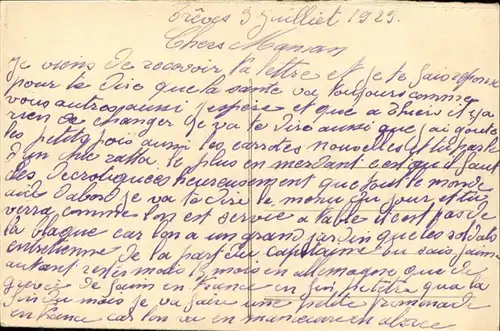 Trêves 3 Juillet 1929.
Chers Maman
Je viens de recevoir ta lettre et je te fais réponse
pour te dire que la santé va toujours comme
vous autres aussi j'espère et que a Thiers il y a
rien de changer Je va te dire aussi que j'ai gouté
les petits pois aussi les nouvelles et tu parle
d'un pic ratta. le plus en merdant c'est qu'il faut
des heureusement que tout le monde
aide d'abord je va te dire le menu du jour et tu
verra comme l'on est servie a table c'est pas de
la blague car l'on a un grand jardin que les soldats
entretienne de la part du capitaine tu sais j'aime
autant rester mois en allemagne que de
crever de faim en France enfin peutetre qua la
fin du mois je va faire une petite promenade
en France car l'on va en manoeuvre en